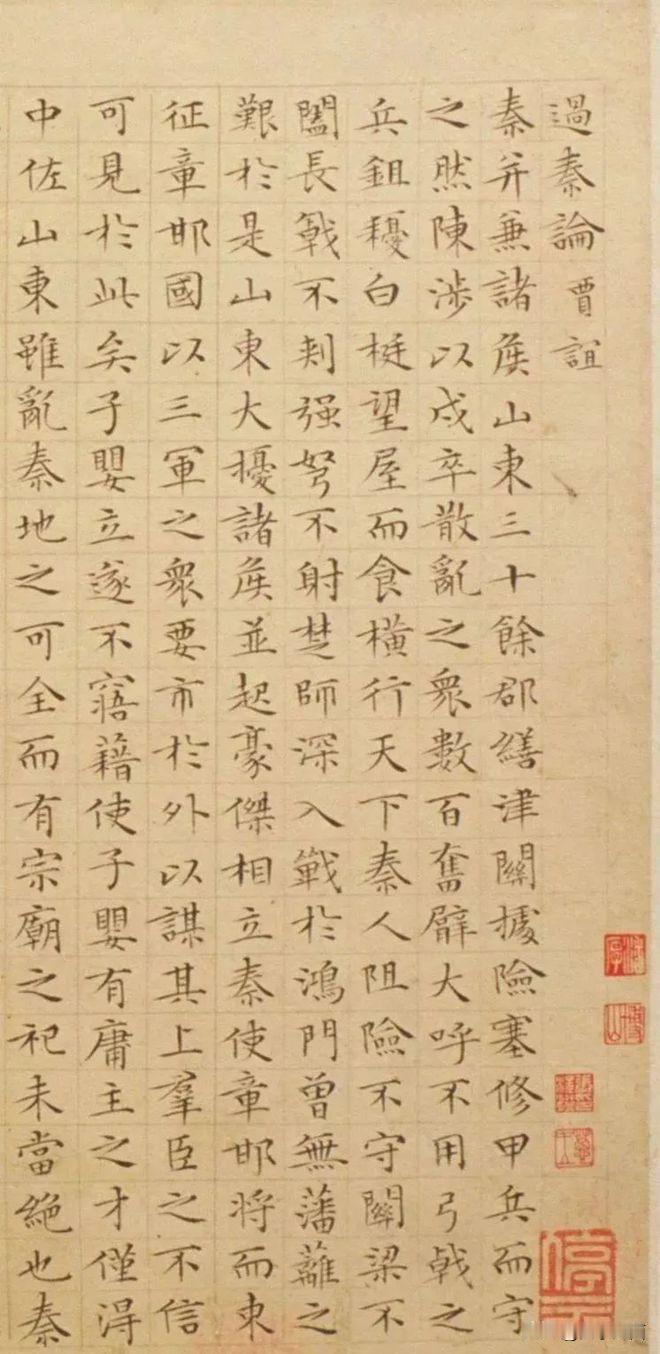 過秦論 賈誼
秦并兼諸侯山東三十餘郡繕津關據險塞修甲兵而守
之然陳涉以戍卒散亂之衆數百奮臂大呼不用弓戟之
兵鉏耰白梃望屋而食橫行天下秦人阻險不守關梁不
闔長戟不刺强弩不射楚師深入戰於鴻門曾無藩籬之
艱於是山東大擾諸侯並起豪傑相立秦使章邯將而東
征章邯國以三軍之衆要市於外以謀其上羣臣之不信
可見於此矣子嬰立遂不寤藉使子嬰有庸主之才僅得
中佐山東雖亂秦地之可全而有宗廟之祀未當絕也秦
停云